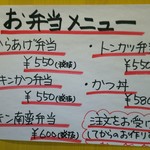 お弁当メニュー
らあげ弁当
¥550(税抜)
キンかつ弁当
¥550(税抜)
キン南蛮弁当
¥600(税抜)
・トンカツ弁
¥550
・かつ丼
¥580
注文をお受け
してからのお作り